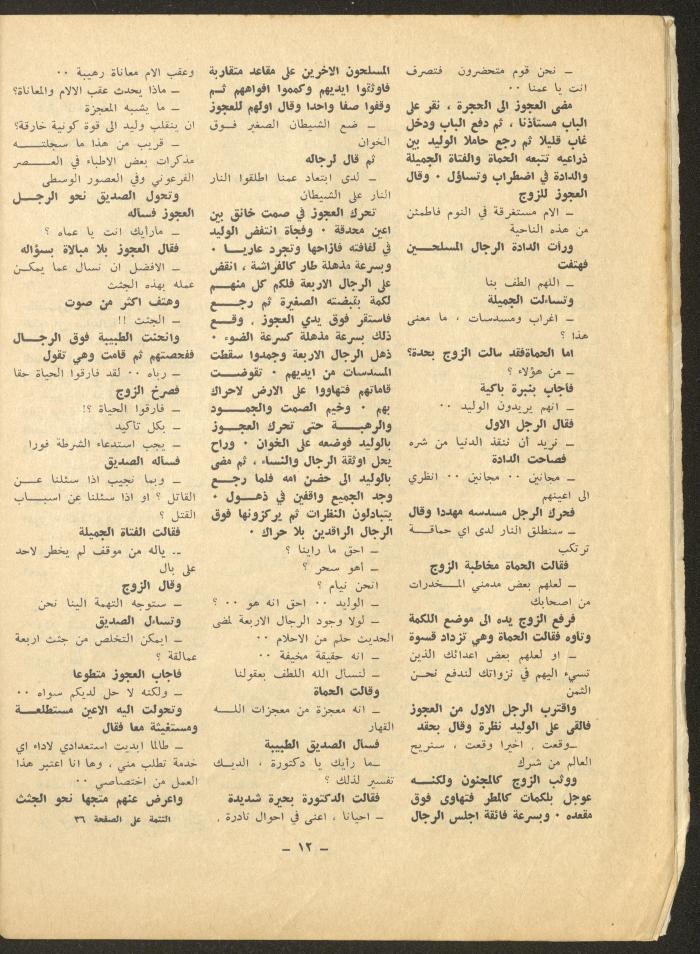 ـ نحن قوم متحضرون فتصرف
انت يا عمنا ٠٠
مضى العجوز الى الحجرة ، نقر على
الباب مستأذنا ، ثم دفع الباب ودخل
غاب قليلا ثم رجع حاملا الوليد بين
ذراعيه تتبعه الحماة والفتاة الجميلة
والدادة في اضطراب وتساؤل ٠ وقال
العجوز للزوج
ـ الام مستغرقة في النوم فاطمئن
من هذه الناحية
ورأت الدادة الرجال المسلحين
فهتفت
ـ اللهم الطف بنا
وتساءلت الجميلة
ـ اغراب ومسدسات ، ما معنى
هذا ؟
اما الحماةفقد سالت الزوج بحدة؟
ـ من هؤلاء ؟
فاجاب بنبرة باكية
ـ انهم يريدون الوليد ٠٠
فقال الرجل الاول
ـ نريد أن ننقذ الدنيا من شره
فصاحت الدادة
ـ مجانين ٠٠ مجانين ٠٠ انظري
الى اعينهم
فحرك الرجل مسدسه مهددا وقال
ـ سنطلق النار لدى اي حماقة
ترتكب
فقالت الحماة مخاطبة الزوج
ـ لعلهم بعض مدمني المخدرات
من اصحابك
فرفع الزوج يده الى موضع اللكمة
وتاوه فقالت الحماة وهي تزداد قسوة
ـ او لعلهم بعض اعدائك الذين
تسيء اليهم في نزواتك لندفع نحن
الثمن
واقترب الرجل الاول من العجوز
فالقى على الوليد نظرة وقال بحقد
ـوقعت ٠ اخيرا وقعت ، سنريح
العالم من شرك
ووثب الزوج كالمجنون ولكنه
عوجل بلكمات كالمطر فتهاوى فوق
مقعده ٠ وبسرعة فائقة اجلس الرجال
المسلحون الاخرين على مقاعد متقاربة
فاوثثوا ايديهم وكمموا افواههم ثم
وقفوا صفا واحدا وقال اولهم للعجوز
ـ ضع الشيطان الصغير فوق
الخوان
ثم قال لرجاله
ـ لدى ابتعاد عمنا اطلقوا النار
النار على الشيطان
تحرك العجوز في صمت خانق بين
اعين محدقة ٠ وفجاة انتفض الوليد
في لفافته فازاحها وتجرد عاريا ٠
وبسرعة مذهلة طار كالفراشة ، انقض
على الرجال الاربعة فلكم كل منهم
لكمة بقبضته الصغيرة ثم رجع
فاستقر فوق يدي العجوز ٠ وقع
ذلك بسرعة مذهلة كسرعة الضوء ٠
ذهل الرجال الاربعة وجمدوا سقطت
المسدسات من ايديهم ٠ تقوضت
قاماتهم فتهاووا على الارض لاحراك
بهم ٠ وخيم الصمت والجمود
والرهبة حتى تحرك العجوز
بالوليد فوضعه على الخوان ٠ وراح
يحل اوثقة الرجال والنساء ، ثم مضى
بالوليد الى حضن امه فلما رجع
وجد الجميع واقفين في ذهول ٠
يتبادلون النظرات ثم يركزونها فوق
الرجال الراقدين بلا حراك ٠
ـ احق ما راينا ؟
ـ أهو سحر ؟
انحن نيام ؟
ـ الوليد ٠٠ احق انه هو ٠٠ ؟
ـ لولا وجود الرجال الاربعة لمضى
الحديث حلم من الاحلام ٠٠
ـ انه حقيقة مخيفة ٠٠
ـ لنسال الله اللطف بعقولنا
وقالت الحماة
ـ انه معجزة من معجزات الله
القهار
فسال الصديق الطبيبة
ـما رايك يا دكتورة ، الديك
تفسير لذلك ؟
فقالت الدكتورة بحيرة شديدة
ـ احيانا ، اعنى في احوال نادرة ٠
وعقب الام معاناة رهيبة ٠٠
ـ ماذا يحدث عقب الالام والمعاناة؟
ـ ما يشبه المعجزة
ان ينقلب وليد الى قوة كونية خارقة؟
ـ قريب من هذا ما سجلته
مذكرات بعض الاطباء في العصر
الفرعوني وفي العصور الوسطى
وتحول الصديق نحو الرجل
العجوز فساله
ـ مارأيك انت يا عماه ؟
فقال العجوز بلا مبالاة بسؤاله
ـ الافضل ان نسال عما يمكن
عمله بهذه الجثث
وهتف اكثر من صوت
ـ الجثث !!
وانحنت الطبيبة فوق الرجال
ففحصتهم ثم قامت وهي تقول
ـ رباه ٠٠ لقد فارقوا الحياة حقا
فصرخ الزوج
ـ فارقوا الحياة ؟!
ـ بكل تاكيد
ـ يجب استدعاء الشرطة فورا
فسأله الصديق
ـ وبما نجيب اذا سئلنا عن
القاتل ؟ او اذا سئلنا عن اسباب
القتل ؟
فقالت الفتاة الجميلة
ـ ياله من موقف لم يخطر لاحد
على بال
وقال الزوج
ـ ستوجه التهمة الينا نحن
وتساءل الصديق
ـ ايمكن التخلص من جثث اربعة
عمالقة ؟
فاجاب العجوز متطوعا
ـ ولكنه لا حل لديكم سواه ٠٠
وتحولت اليه الاعين مستطلعة
ومستغيثة معا فقال
ـ طالما ابديت استعدادي لاداء اي
خدمة تطلب مني ، وها انا اعتبر هذا
العمل من اختصاصي ٠٠
واعرض عنهم متجها نحو الجثث
التتمة على الصفحة ٣٦
ـ ١٢ ـ